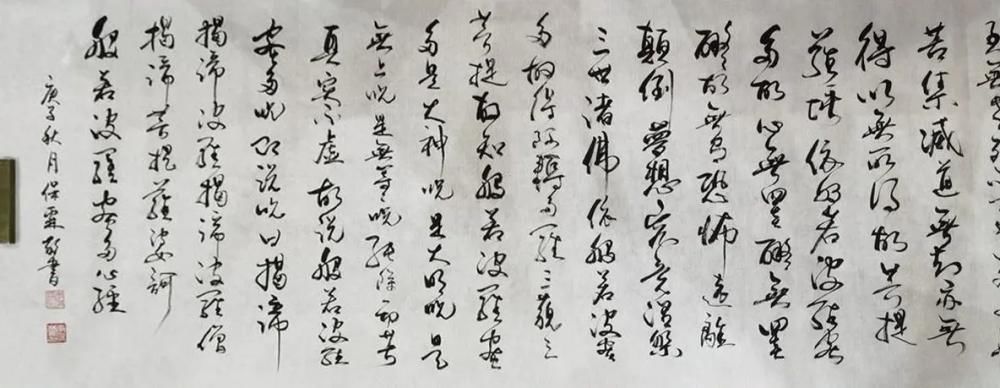 苦集滅道無智亦無
得以無所得故菩提
薩埵依般若波羅蜜
多故心無罣礙無罣
礙故無有恐怖遠離
顛倒夢想究竟涅槃
三世諸佛依般若波蜜
多故得阿耨多羅三藐三
菩提故知般若波羅蜜
多是大神咒是大明咒是
無上咒是無等咒能除一切苦
真實不虛故說般若波羅
蜜多咒即說咒曰揭諦
揭諦波羅揭諦波羅僧
揭諦菩提薩婆訶
般若波羅蜜多心經
庚子秋月保霖敬書